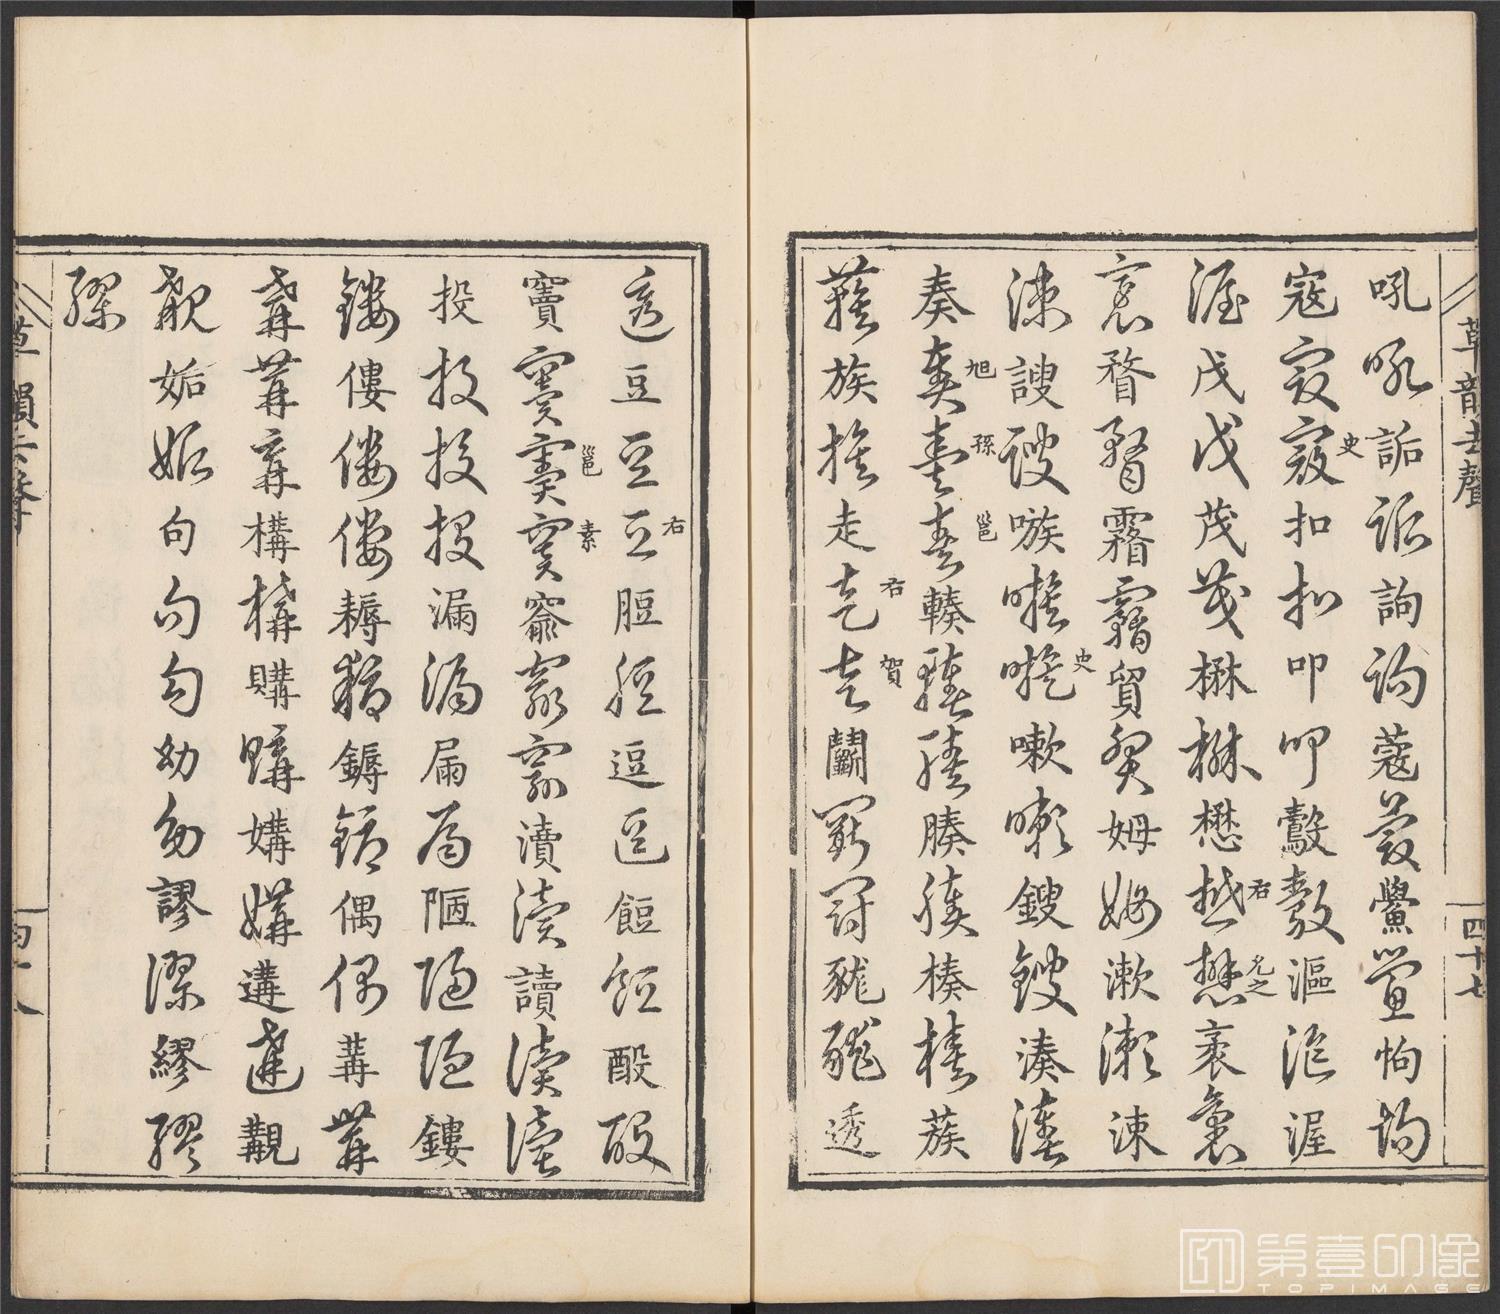 草韻去聲
四十七
吼吼詬詬詢詢蔻蔻鱟鱟怐怐
寇寇寇史扣扣叩叩鷇鷇漚漚渥
渥戊戊茂茂楙楙懋懋右懋允之袤袤
袤瞀瞀霿霿貿貿姆姆漱漱涑
涑謏謏嗾嗾嗾史嗽嗽鎪鎪湊湊
奏奏旭奏孫奏邕輳輳輳腠腠楱楱蔟
蔟族族走走右走賀鬭鬭鬭豵豵透
透豆豆豆右脰脰逗逗餖餖酘酘
竇竇竇邕竇素窬窬窬瀆瀆讀讀讀
投投投投漏漏屚屚陋陋陋鏤
鏤僂僂僂耨耨鎒鎒偶偶冓冓
冓冓冓構構購購媾媾遘遘覯
覯姤姤句句句幼幼謬謬繆繆
繆
草韻去聲